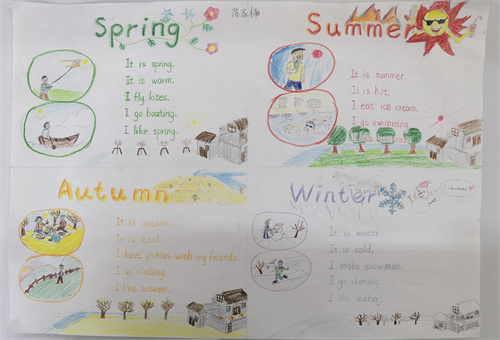 Spring
It is spring.
It is warm.
I fly kites.
I go boating.
I like spring.
Summer
It is summer.
It is hot.
I eat ice cream.
I go swimming.
Autumn
It is autumn.
It is cool.
I have picnics with my friends.
I go climbing.
I like autumn.
Winter
It is winter.
It is cold.
I make snowmen.
I go
I like winter.